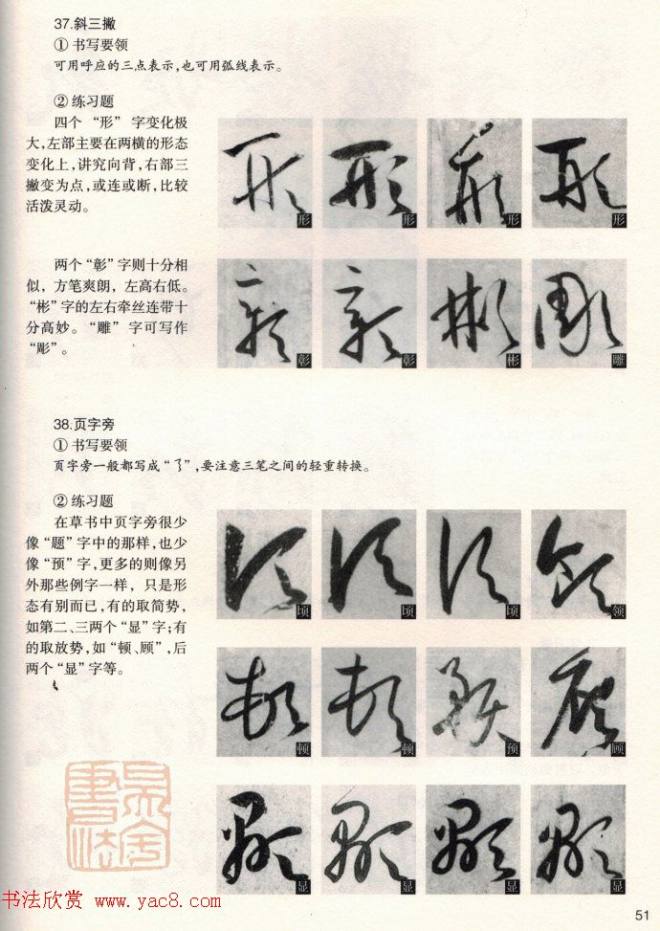 37.斜三撇
① 书写要领
可用呼应的三点表示,也可用弧线表示。
② 练习题
四个“形”字变化极
大,左部主要在两横的形态
变化上,讲究向背,右部三
撇变为点,或连或断,比较
活泼灵动。
形 形 形 形
两个“彰”字则十分相
似,方笔爽朗,左高右低。
“彬”字的左右牵丝连带十
分高妙。“雕”字可写作
“彫”。
彰 彰 彬 雕
38.页字旁
① 书写要领
页字旁一般都写成“ ”,要注意三笔之间的轻重转换。
② 练习题
在草书中页字旁很少
像“题”字中的那样,也少
像“预”字,更多的则像另
外那些例字一样,只是形
态有别而已,有的取简势,
如第二、三两个“显”字;有
的取放势,如“顿、顾”,后
两个“显”字等。
顷 顷 顷 领
顿 顿 预 顾
显 显 显 显
书法欣赏 www.yac8.com
51